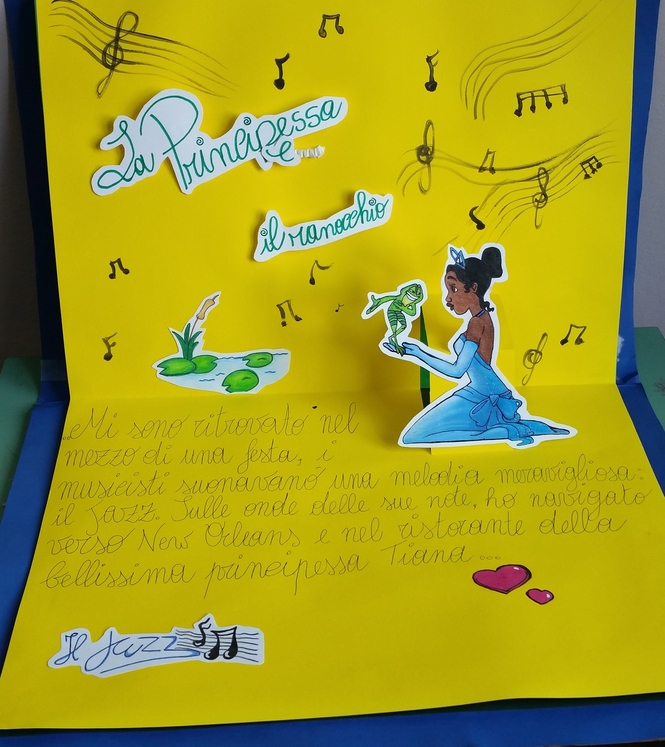 La Principessa
e....
il ranocchio
"Mi sono ritrovato nel
mezzo di una festa, i
musicisti suonavano una melodia meravigliosa:
il jazz. Sulle onde delle sue note, ho navigato
verso New Orleans e nel ristorante della
bellissima principessa Tiana ...
Il Jazz